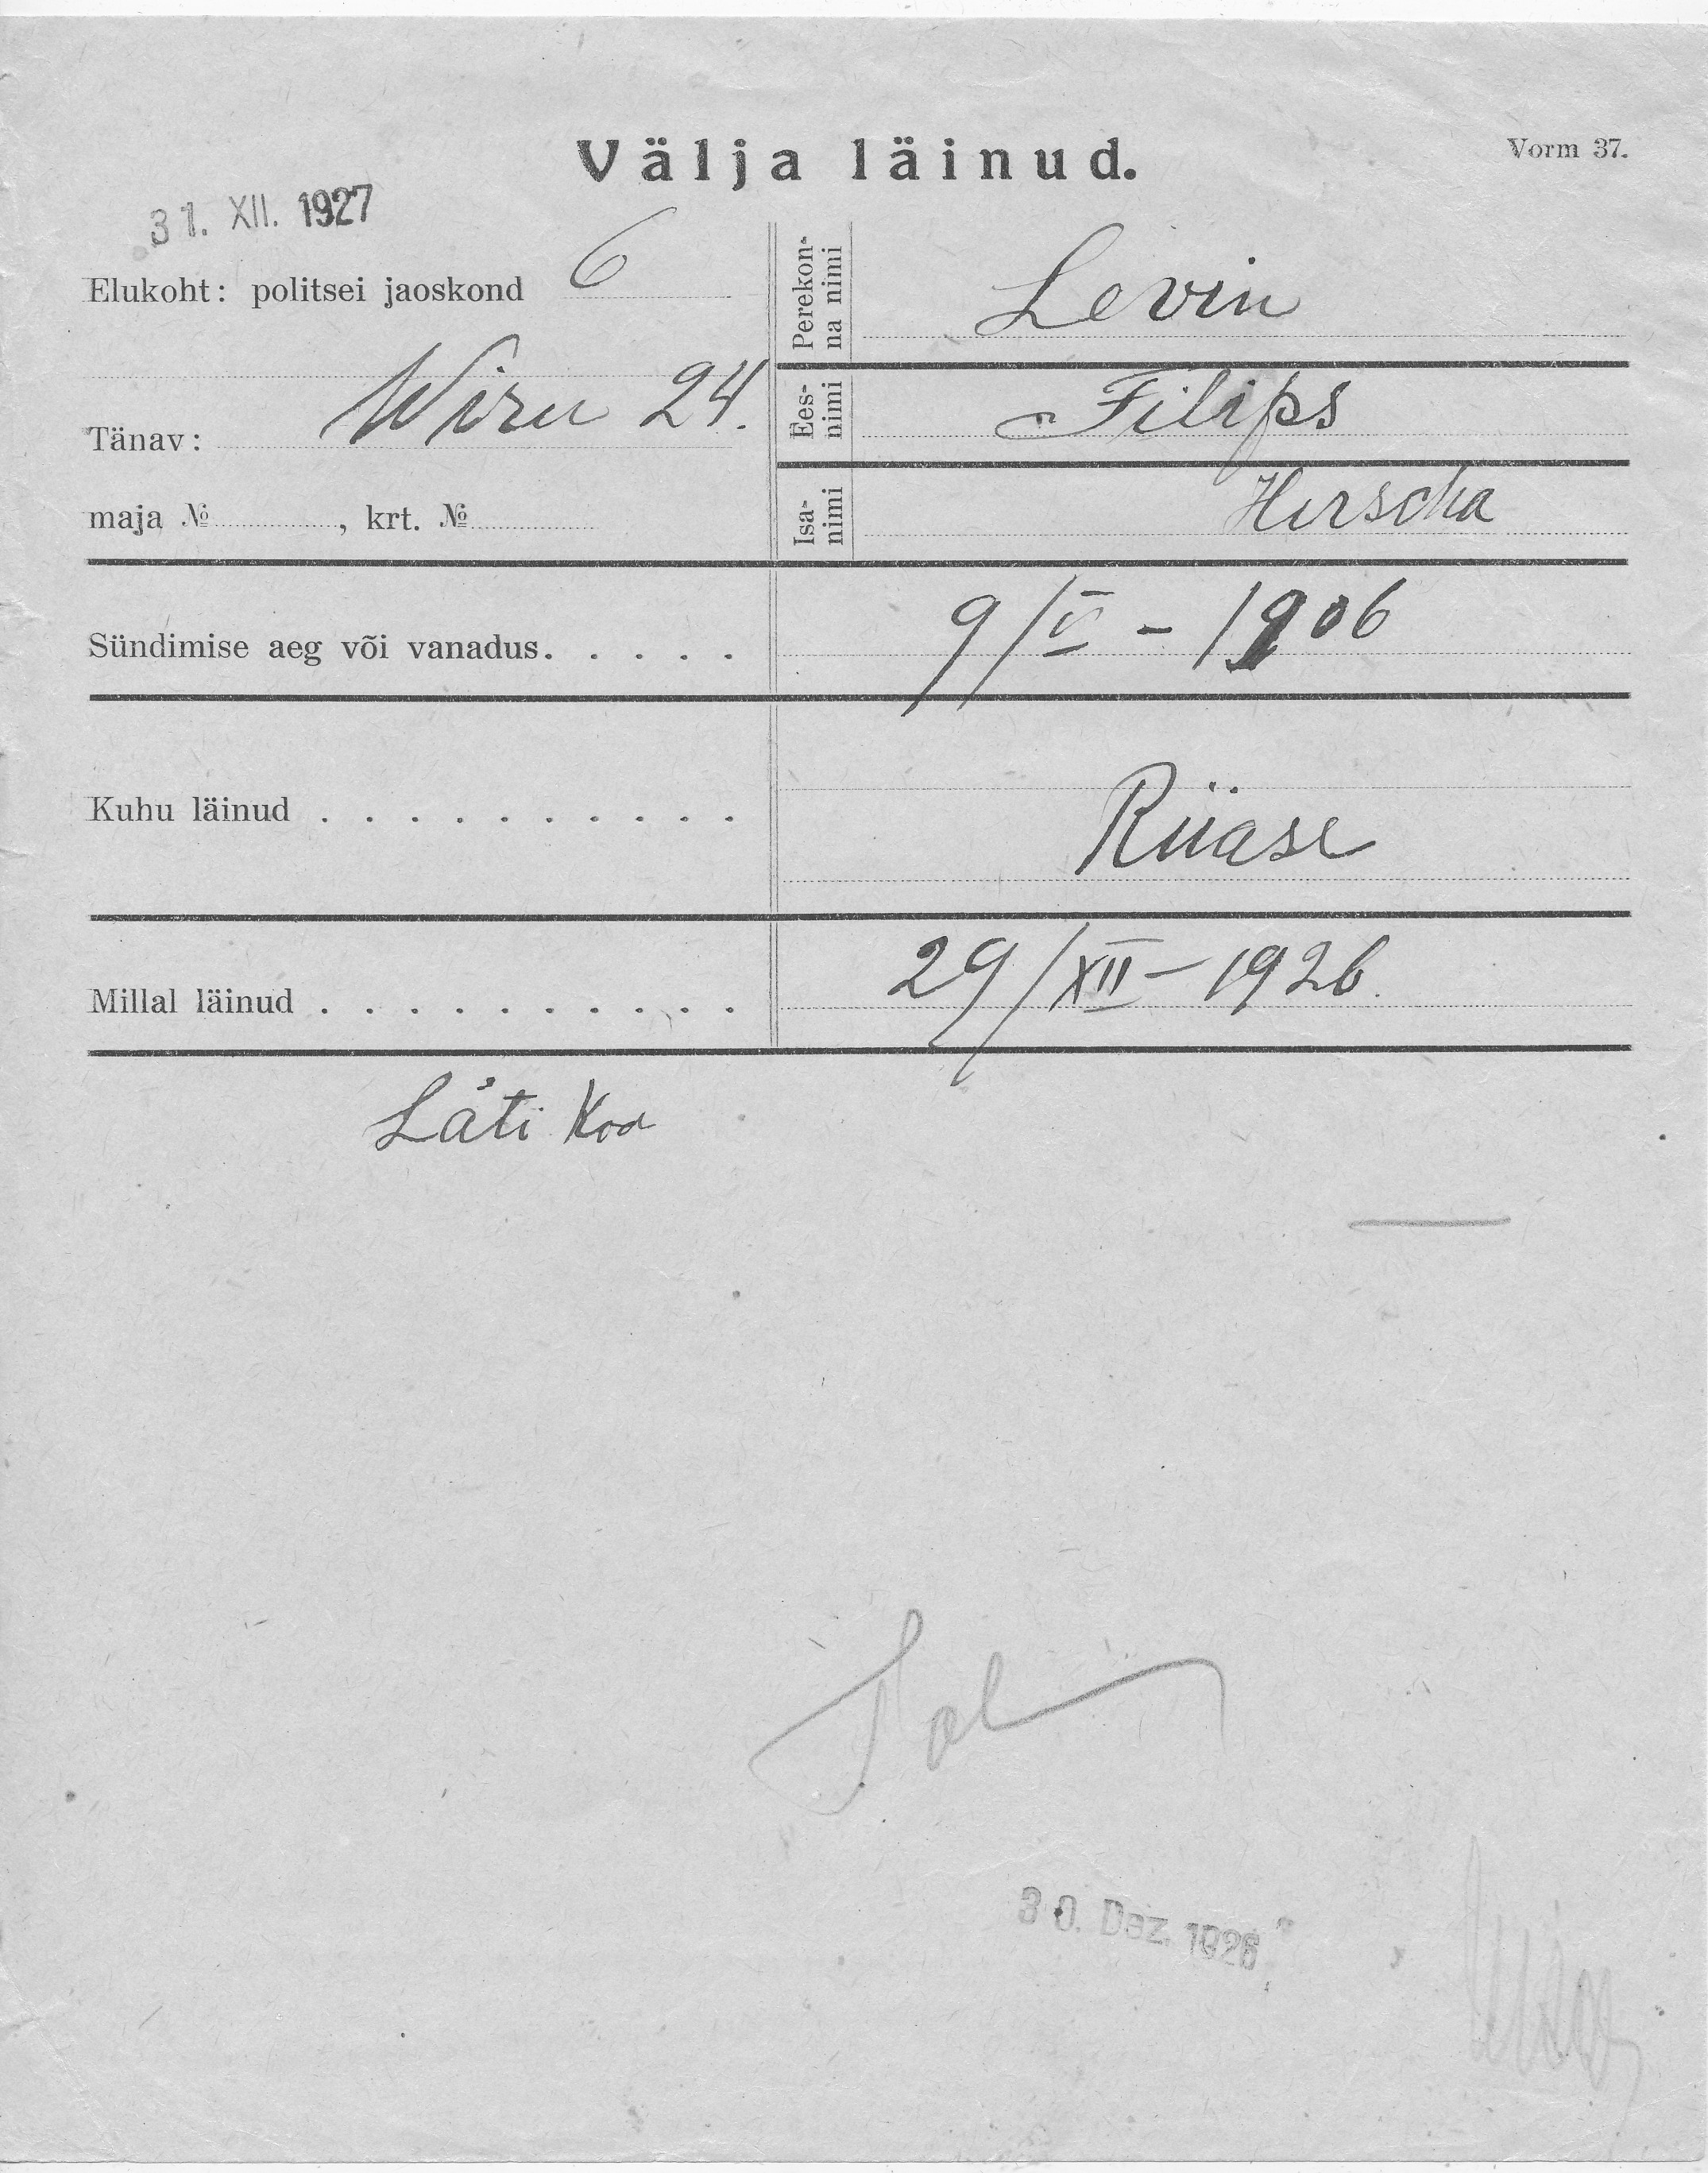 Välja läinud.
Vorm 37.
31. XII. 1927
Elukoht: politsei jaoskond 6
Tänav: Wiru 24.
maja № , krt. №
Perekon-
na nimi
Levin
Ees-
nimi
Filips
Isa-
nimi
Hirscha
Sündimise aeg või vanadus. . . . . 9/V - 1906
Kuhu läinud . . . . . . . . . . Riiase
Millal läinud . . . . . . . . . . 29/XII - 1926.
Läti Kod
30. Dez. 1926